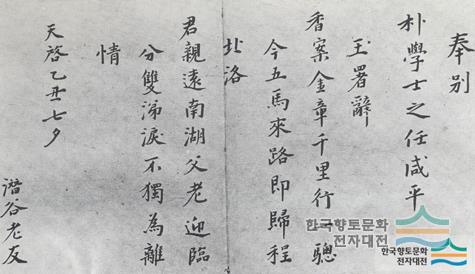 奉别
朴學士之任咸平
玉署辭
香案金章千里行驄
今五馬來路即歸程
北洛
君親遠南湖父老迎臨
分雙涕淚不獨為離
情
天啓乙丑七夕
潛谷老友
한국향토문화
전자대전
한국향토문화
전자대전